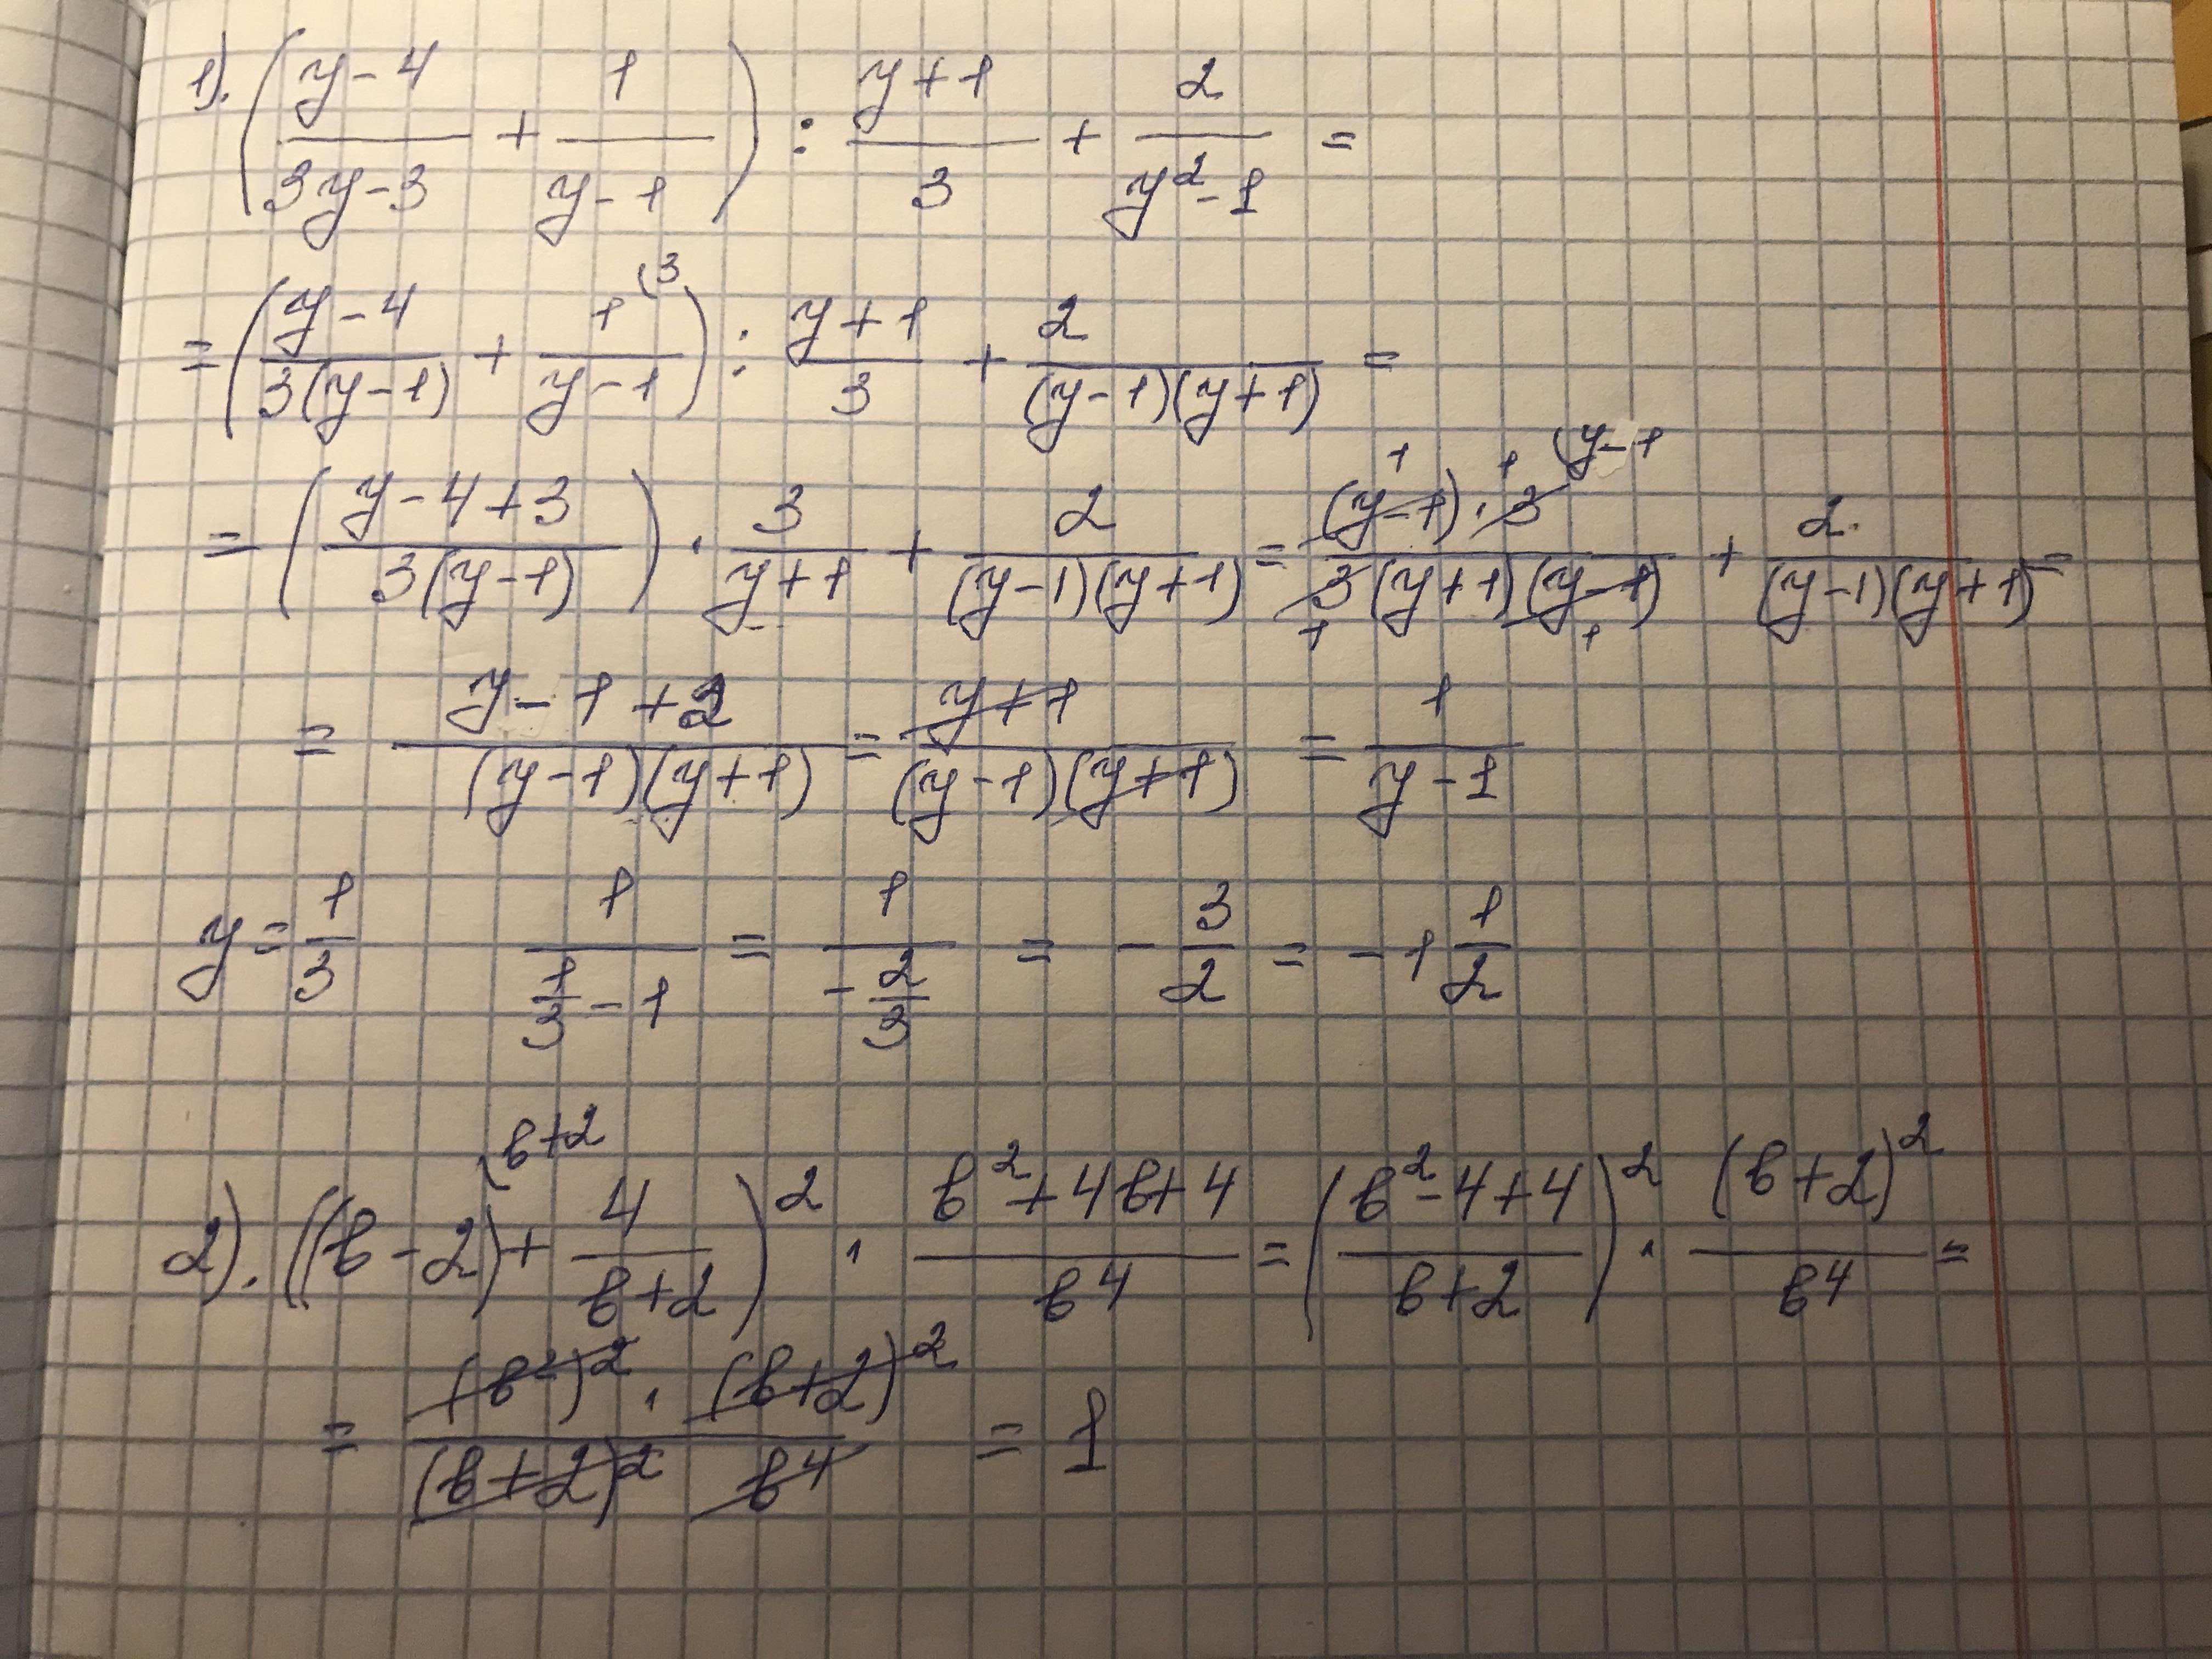 1). ((y-4)/(3y-3) + 1/(y-1)) : (y+1)/3 + 2/(y²-1) =
= ((y-4)/(3(y-1)) + 1/(y-1) (3) : (y+1)/3 + 2/((y-1)(y+1)) =
= ((y-4+3)/(3(y-1))) · 3/(y+1) + 2/((y-1)(y+1)) = ((y-1)·3)/(3(y+1)(y-1)) (y-1 + 2/((y-1)(y+1)) =
= (y-1+2)/((y-1)(y+1)) = (y+1)/((y-1)(y+1)) = 1/(y-1)
y = 1/3   1/(1/3 - 1) = 1/(-2/3) = -3/2 = -1 1/2
2). ((в-2) (в+2 + 4/(в+2))² · (в²+4в+4)/в⁴ = ((в²-4+4)/(в+2))² · (в+2)²/в⁴ =
= ((в²)² · (в+2)²)/((в+2)² в⁴) = 1